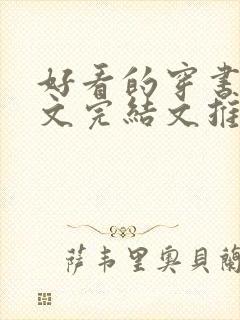 好看的穿書
文完結文推
萨韦里奥貝蘭